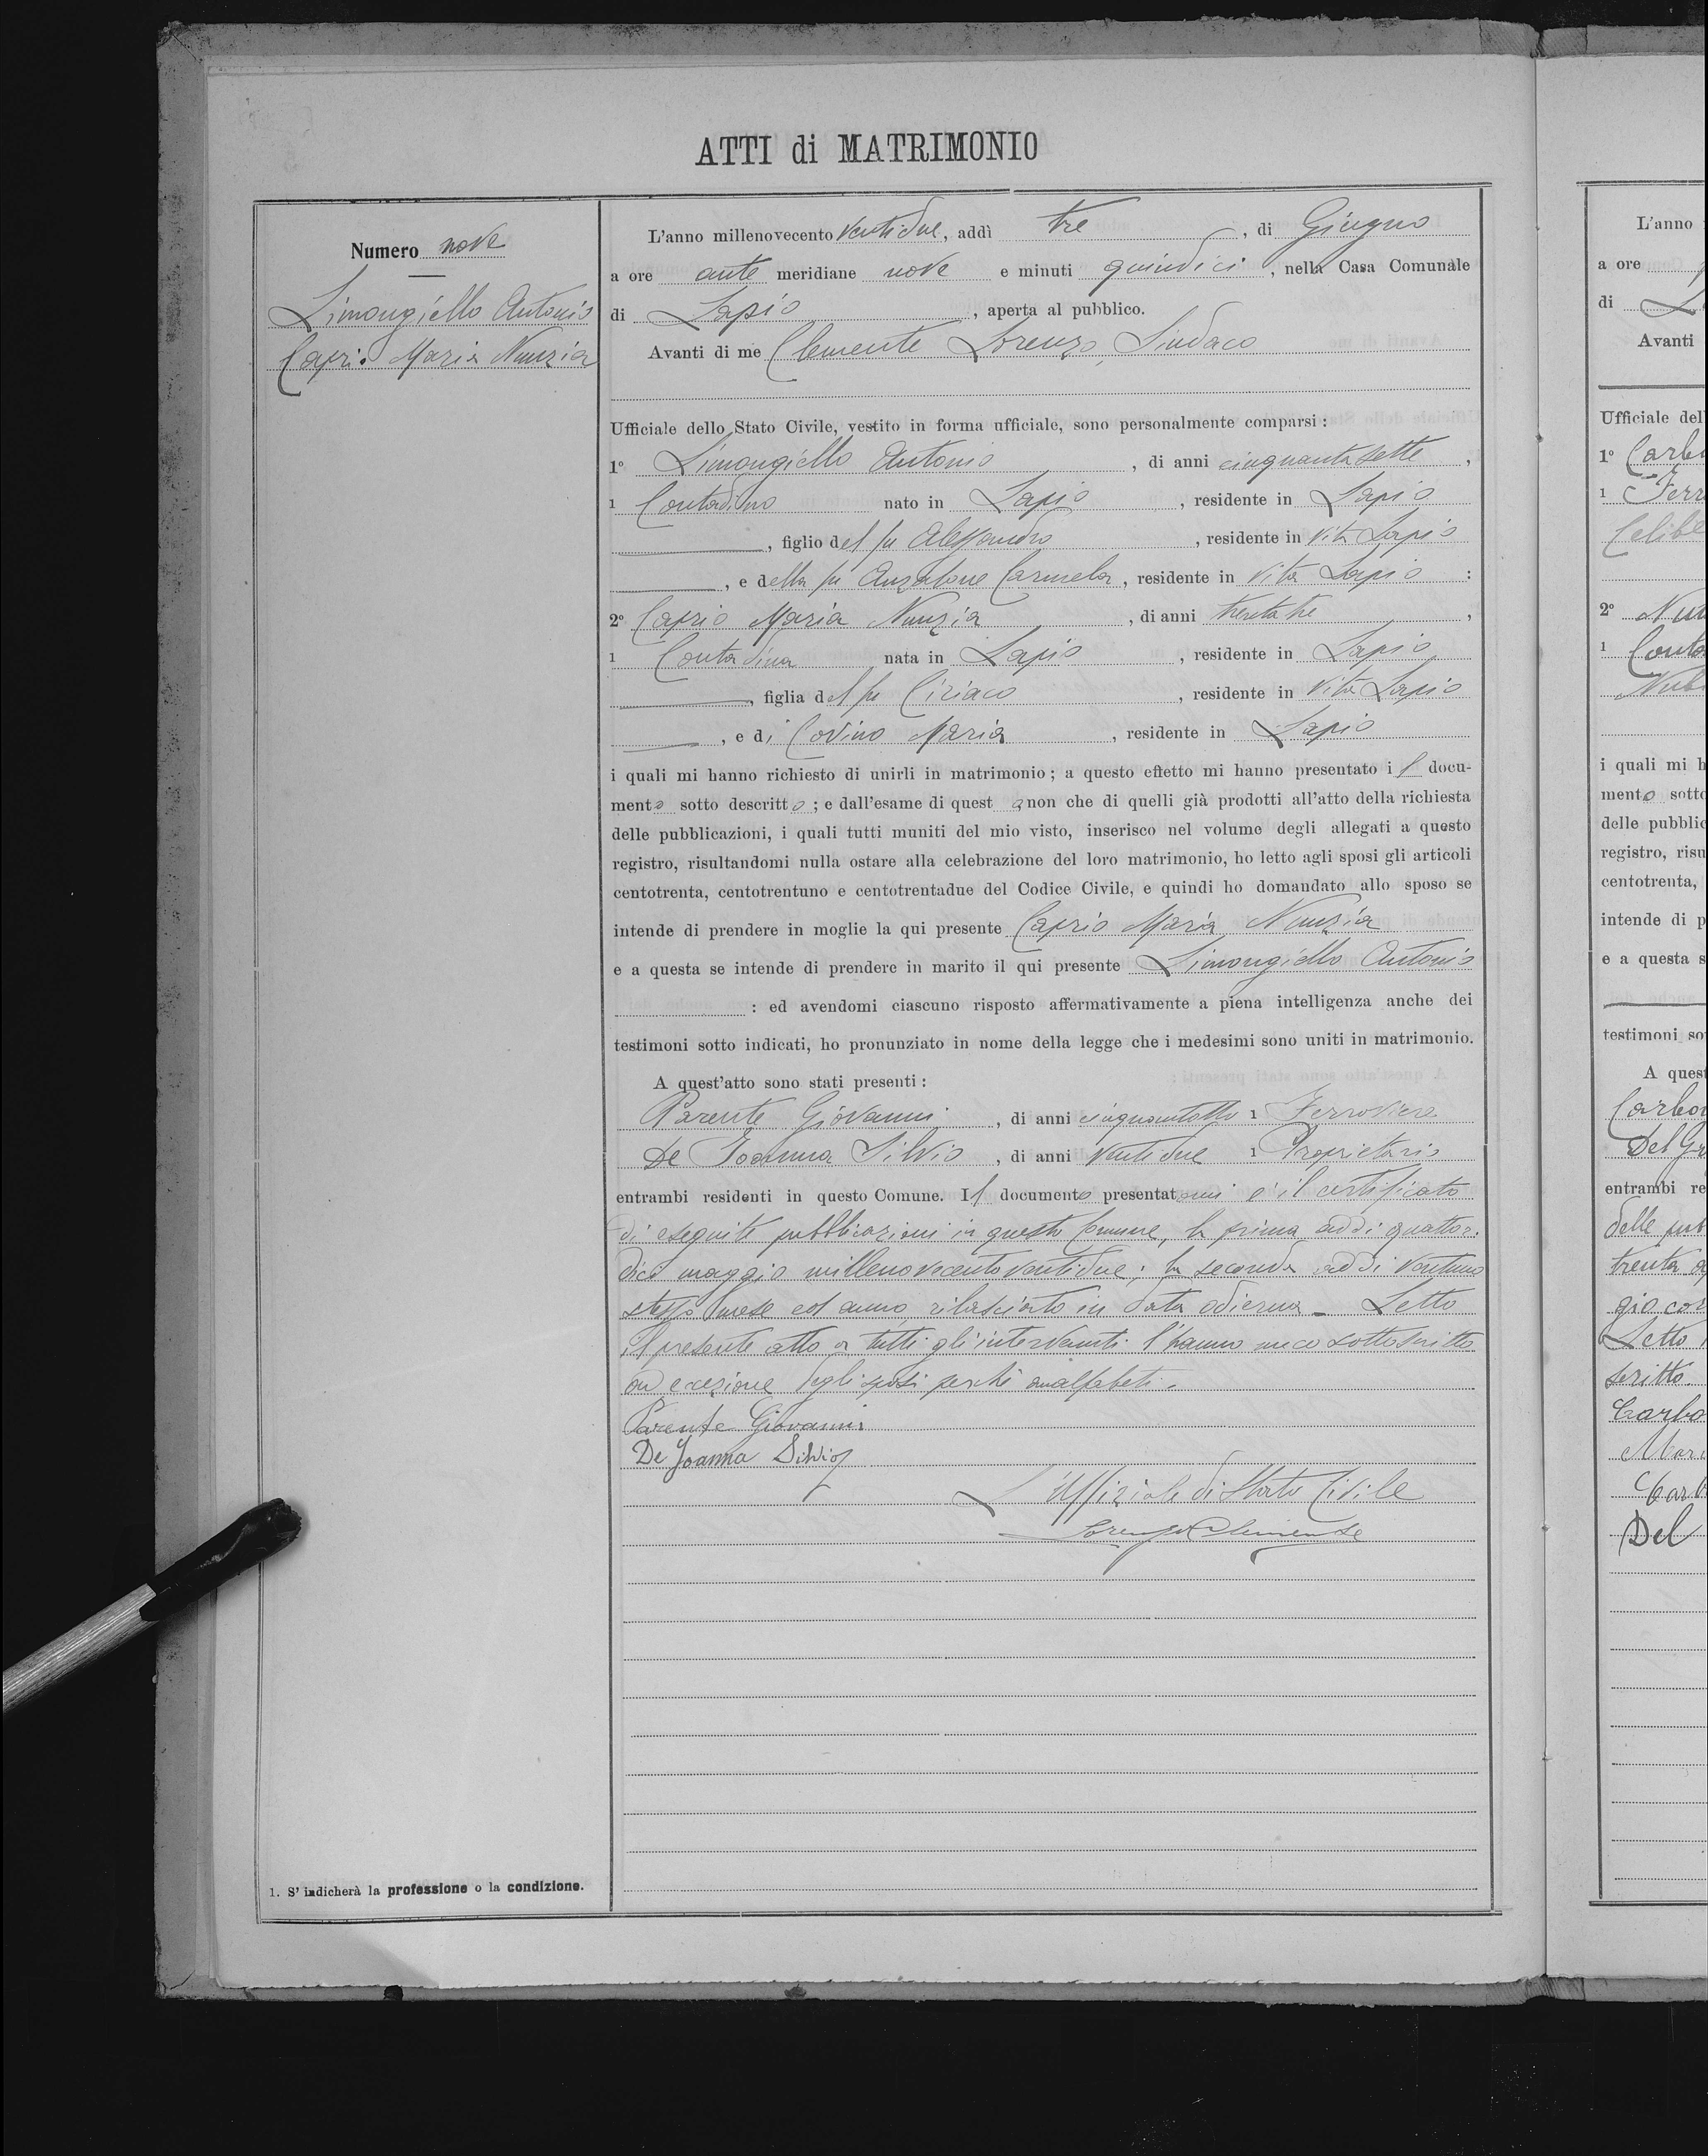 ATTI di MATRIMONIO
Numero nove
Limongiello Antonio
Caprio Maria Nunzia
L'anno millenovecento ventidue, addì tre, di Giugno
a ore ante meridiane nove e minuti quindici, nella Casa Comunale
di Lapio, aperta al pubblico.
Avanti di me Clemente Lorenzo, Sindaco
Ufficiale dello Stato Civile, vestito in forma ufficiale, sono personalmente comparsi:
1° Limongiello Antonio, di anni cinquantasette,
1 Contadino nato in Lapio, residente in Lapio
, figlio del fu Alessandro, residente in vita Lapio
, e della fu Anzalone Carmela, residente in vita Lapio:
2° Caprio Maria Nunzia, di anni trentatre,
1 Contadina nata in Lapio, residente in Lapio
, figlia del fu Ciriaco, residente in vita Lapio
, e di Covino Maria, residente in Lapio
i quali mi hanno richiesto di unirli in matrimonio; a questo effetto mi hanno presentato il docu-
mento sotto descritto; e dall'esame di questo non che di quelli già prodotti all'atto della richiesta
delle pubblicazioni, i quali tutti muniti del mio visto, inserisco nel volume degli allegati a questo
registro, risultandomi nulla ostare alla celebrazione del loro matrimonio, ho letto agli sposi gli articoli
centotrenta, centotrentuno e centotrentadue del Codice Civile, e quindi ho domandato allo sposo se
intende di prendere in moglie la qui presente Caprio Maria Nunzia
e a questa se intende di prendere in marito il qui presente Limongiello Antonio
: ed avendomi ciascuno risposto affermativamente a piena intelligenza anche dei
testimoni sotto indicati, ho pronunziato in nome della legge che i medesimi sono uniti in matrimonio.
A quest'atto sono stati presenti:
Parente Giovanni, di anni cinquantotto 1 Ferroviere
De Joanna Silvio, di anni ventidue 1 Proprietario
entrambi residenti in questo Comune. Il documento presentatomi è il certificato
di eseguite pubblicazioni in questo Comune, la prima addì quattor-
dici maggio millenovecentoventidue; la seconda addì ventuno
stesso mese ed anno, rilasciato in data odierna. Letto
il presente atto a tutti gl'intervenuti l'hanno meco sottoscritto
ad eccezione degli sposi perchè analfabeti.
Parente Giovanni
De Joanna Silvio
L'Uffiziale di Stato Civile
Lorenzo Clemente
1. S'indicherà la professione o la condizione.
L'anno
a ore
di L
Avanti
Ufficiale del
1°
1
Celibe
2°
1
i quali mi h
mento sotto
delle pubblic
registro, risu
centotrenta,
intende di p
e a questa s
testimoni so
A quest
Carbo
Del
entrambi re
delle pub
trenta
gio cor
Letto
scritto.
Carbo
Mar
Carb
Del